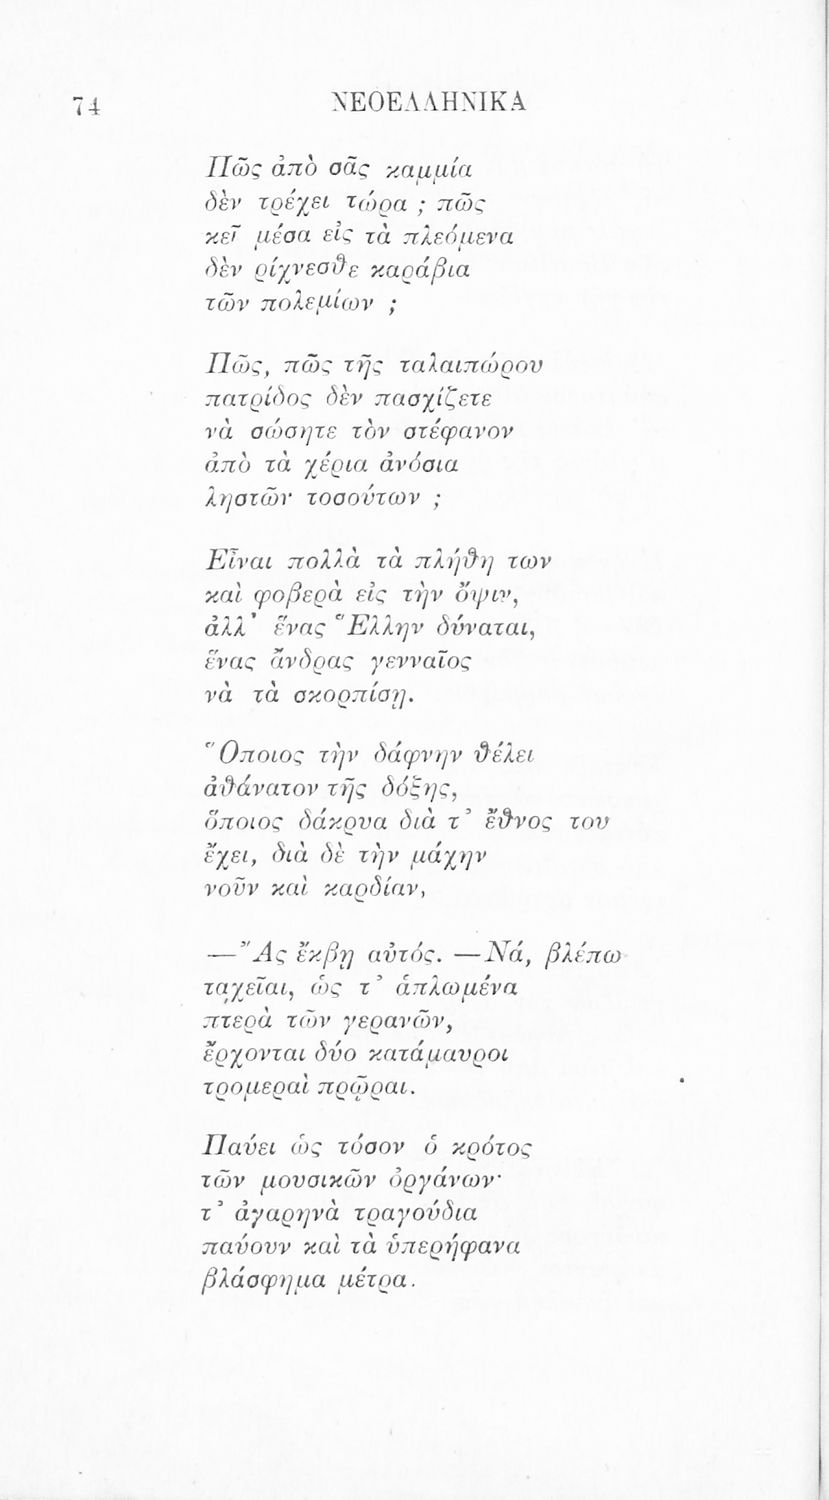 74 ΝΕΟΕΛΛΗΝΙΚΑ
Πῶς ἀπὸ σᾶς καμμία
δὲν τρέχει τώρα ; πῶς
κεῖ μέσα εἰς τὰ πλεόμενα
δὲν ρίχνεσθε καράβια
τῶν πολεμίων ;
Πῶς, πῶς τῆς ταλαιπώρου
πατρίδος δὲν πασχίζετε
νὰ σώσητε τὸν στέφανον
ἀπὸ τὰ χέρια ἀνόσια
ληστῶν τοσούτων ;
Εἶναι πολλὰ τὰ πλήθη των
καὶ φοβερὰ εἰς τὴν ὄψιν,
ἀλλ᾽ ἕνας Ἕλλην δύναται,
ἕνας ἄνδρας γενναῖος
νὰ τὰ σκορπίσῃ.
Ὅποιος τὴν δάφνην θέλει
ἀθάνατον τῆς δόξης,
ὅποιος δάκρυα διὰ τ᾽ ἔθνος του
ἔχει, διὰ δὲ τὴν μάχην
νοῦν καὶ καρδίαν,
—Ἂς ἔκβῃ αὐτός. —Νά, βλέπω
ταχεῖαι, ὡς τ᾽ ἁπλωμένα
πτερὰ τῶν γερανῶν,
ἔρχονται δύο κατάμαυροι
τρομεραὶ πρῷραι.
Παύει ὡς τόσον ὁ κρότος
τῶν μουσικῶν ὀργάνων·
τ᾽ ἀγαρηνὰ τραγούδια
παύουν καὶ τὰ ὑπερήφανα
βλάσφημα μέτρα.